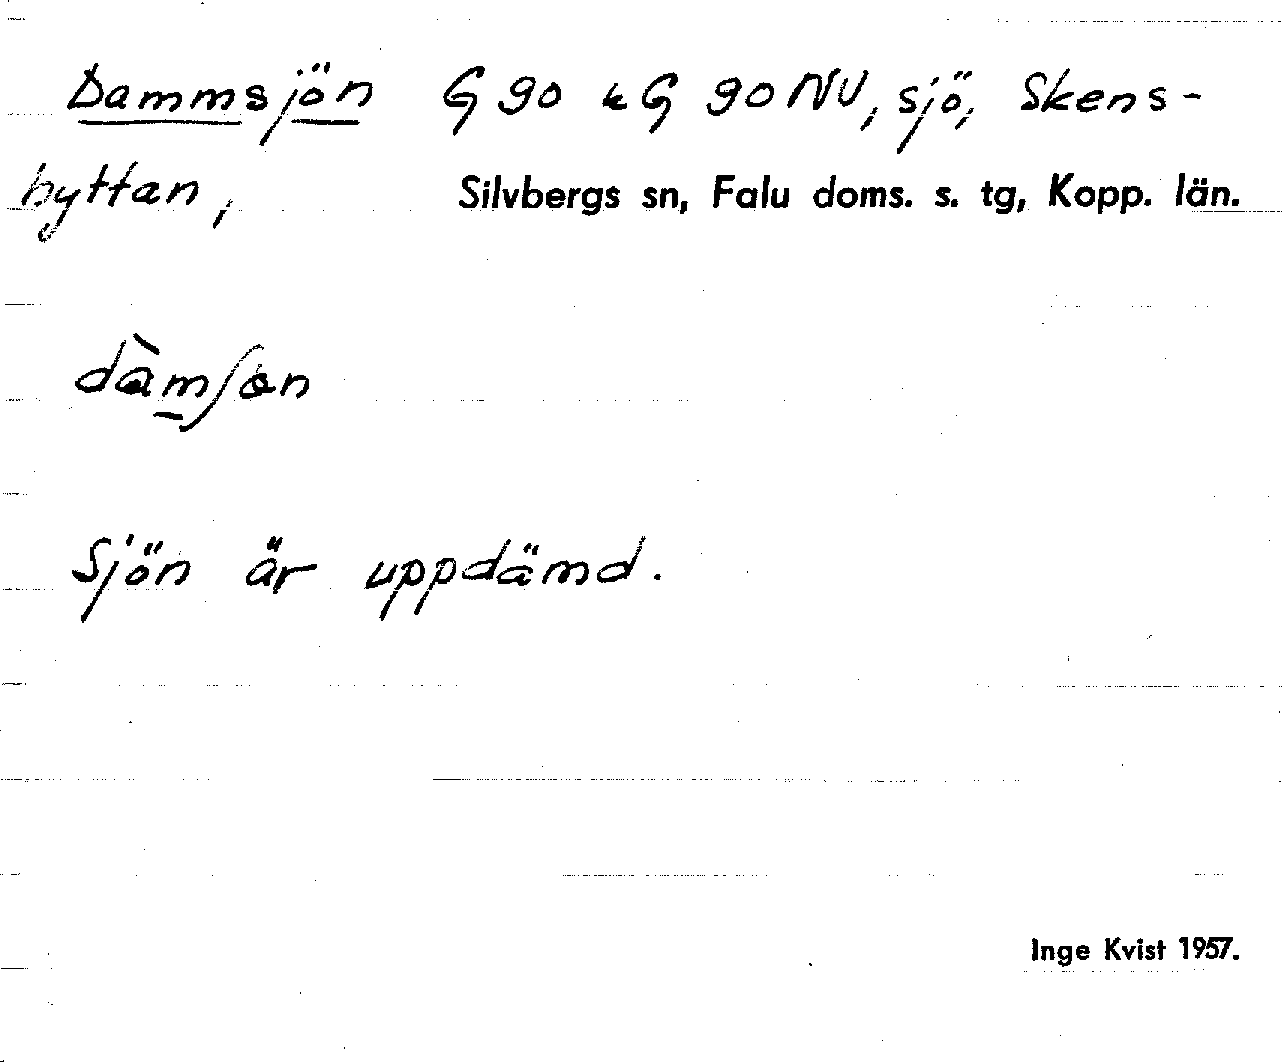 Dammsjön G 90 & G 90 NV, sjö, Skens-
hyttan, Silvbergs sn, Falu doms. s. tg, Kopp. län.
dàmʃɵn
Sjön är uppdämd.
Inge Kvist 1957.